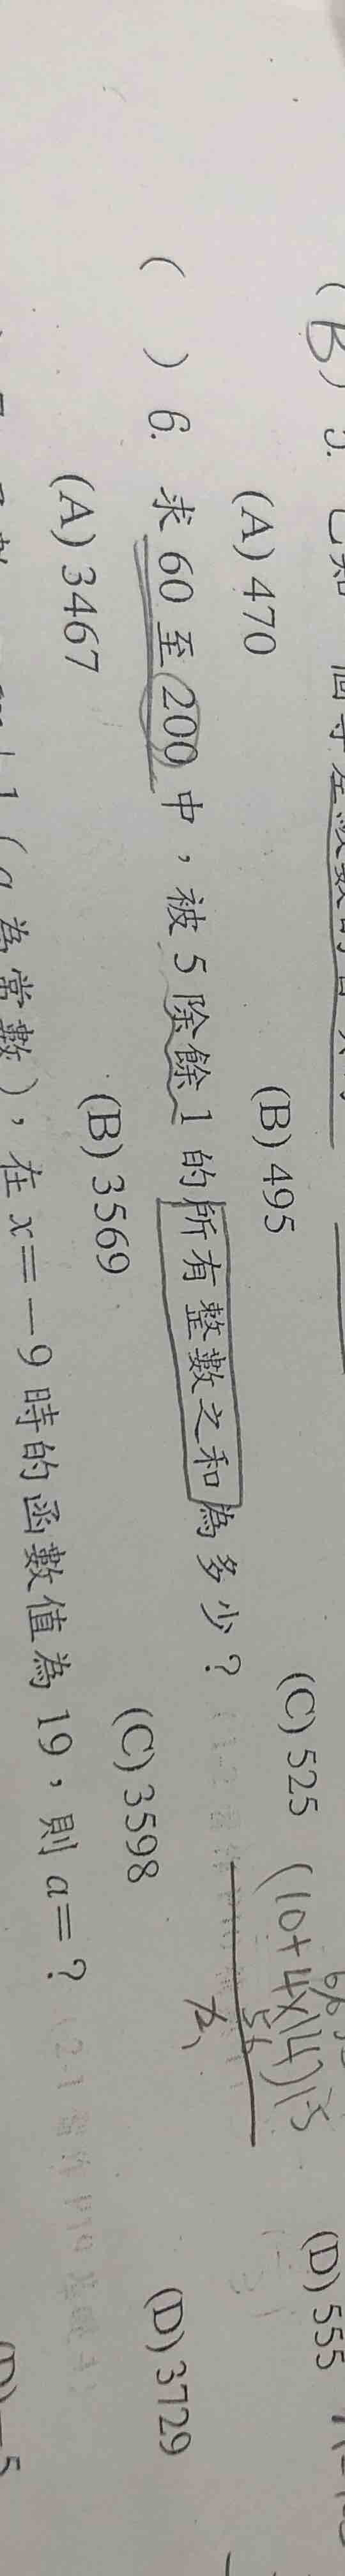 (B) 5. 已知一個等差級數的首
(A) 470 (B) 495 (C) 525 (D) 555
(10+4×14)15
( ) 6. 求 60 至 200 中，被 5 除餘 1 的所有整數之和為多少？
(A) 3467 (B) 3569 (C) 3598 (D) 3729
+1（a 為常數），在 x=－9 時的函數值為 19，則 a=？